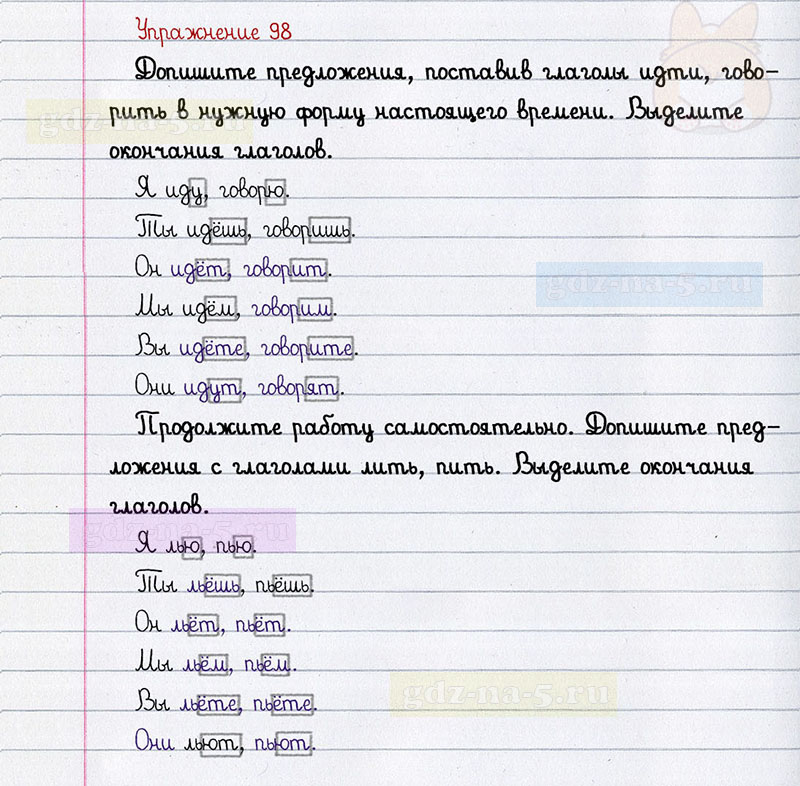 Упражнение 98
Допишите предложения, поставив глаголы идти, гово-
рить в нужную форму настоящего времени. Выделите
gdz-na-5.ru
окончания глаголов.
Я иду, говорю.
Ты идёшь, говоришь.
Он идёт, говорит.
gdz-na-5.ru
Мы идём, говорим.
Вы идёте, говорите.
Они идут, говорят.
Продолжите работу самостоятельно. Допишите пред-
ложения с глаголами лить, пить. Выделите окончания
глаголов.
gdz-na-5.ru
Я лью, пью.
Ты льёшь, пьёшь.
Он льёт, пьёт.
Мы льём, пьём.
gdz-na-5.ru
Вы льёте, пьёте.
Они льют, пьют.